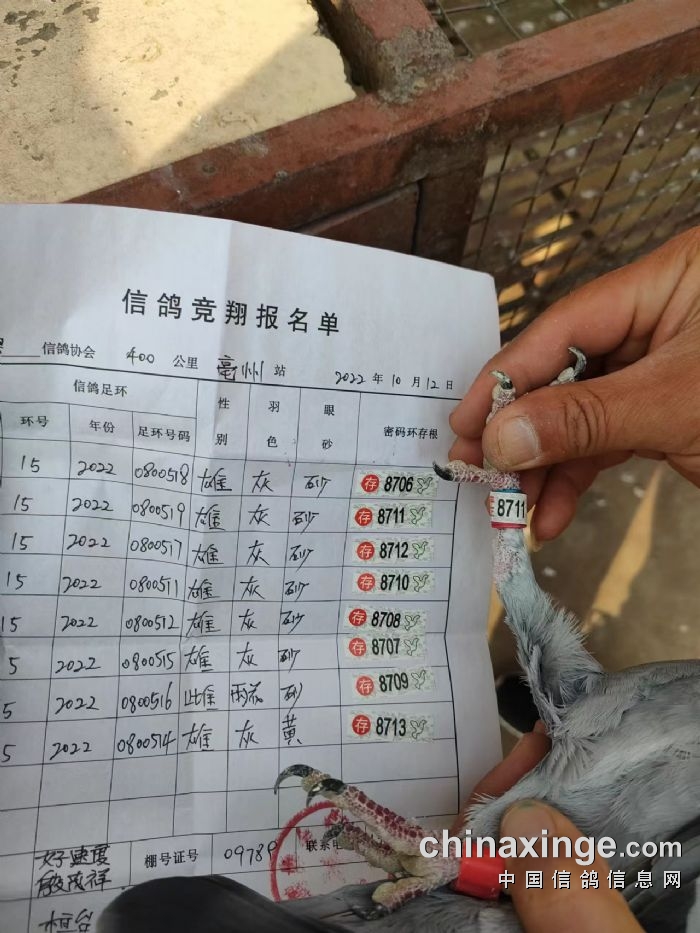 信鸽竞翔报名单
信鸽协会 400 公里 亳州 站 2022 年 10 月 12 日
信鸽足环 性别 羽色 眼砂 密码环存根
环号 年份 足环号码
15 2022 0800518 雄 灰 砂 存 8706
15 2022 0800519 雄 灰 砂 存 8711
15 2022 0800517 雄 灰 砂 存 8712
15 2022 0800511 雄 灰 砂 存 8710
15 2022 0800512 雄 灰 砂 存 8708
5 2022 0800515 雄 灰 砂 存 8707
5 2022 0800516 雌 雨花 砂 存 8709
5 2022 0800514 雄 灰 黄 存 8713
8711
好速度 棚号证号 09789 联系电
殷茂祥
桓台
chinaxinge.com
中国信鸽信息网